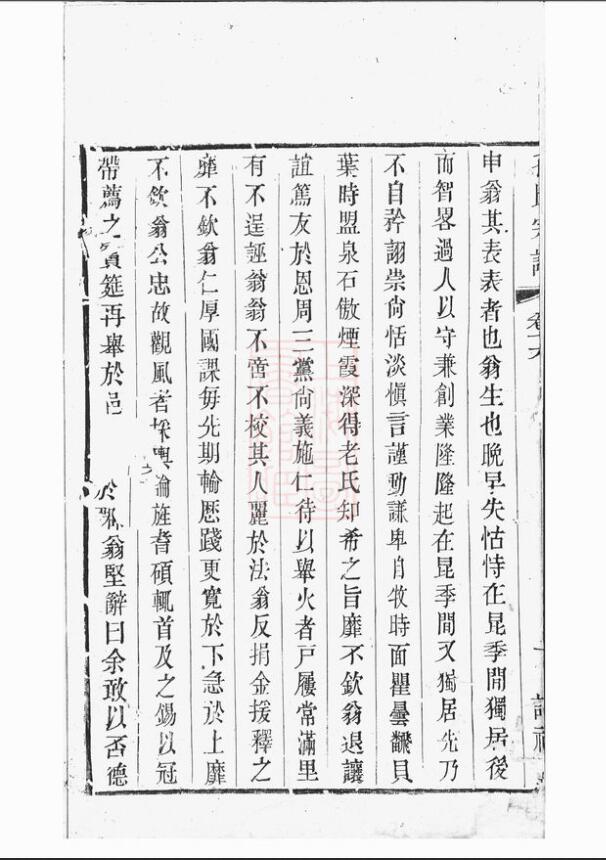 氏宗譜 卷六
申翁其表表者也翁生也晚早失怙恃在昆季間獨居後
而智畧過人以守兼創業隆隆起在昆季間又獨居先乃
不自矜詡崇尚恬淡愼言謹動謙卑自牧時面瞿曇飜貝
葉時盟泉石傲煙霞深得老氏知希之旨靡不欽翁退讓
誼篤友於恩周三黨尚義施仁待以舉火者戸屨常滿里
有不逞誣翁翁不啻不校其人麗於法翁反捐金援釋之
靡不欽翁仁厚國課毎先期輸歷踐更寬於下急於上靡
不欽翁公忠故觀風者採輿論旌耆碩輒首及之錫以冠
帶薦之賓筵再舉於邑 翁堅辭曰余敢以否德